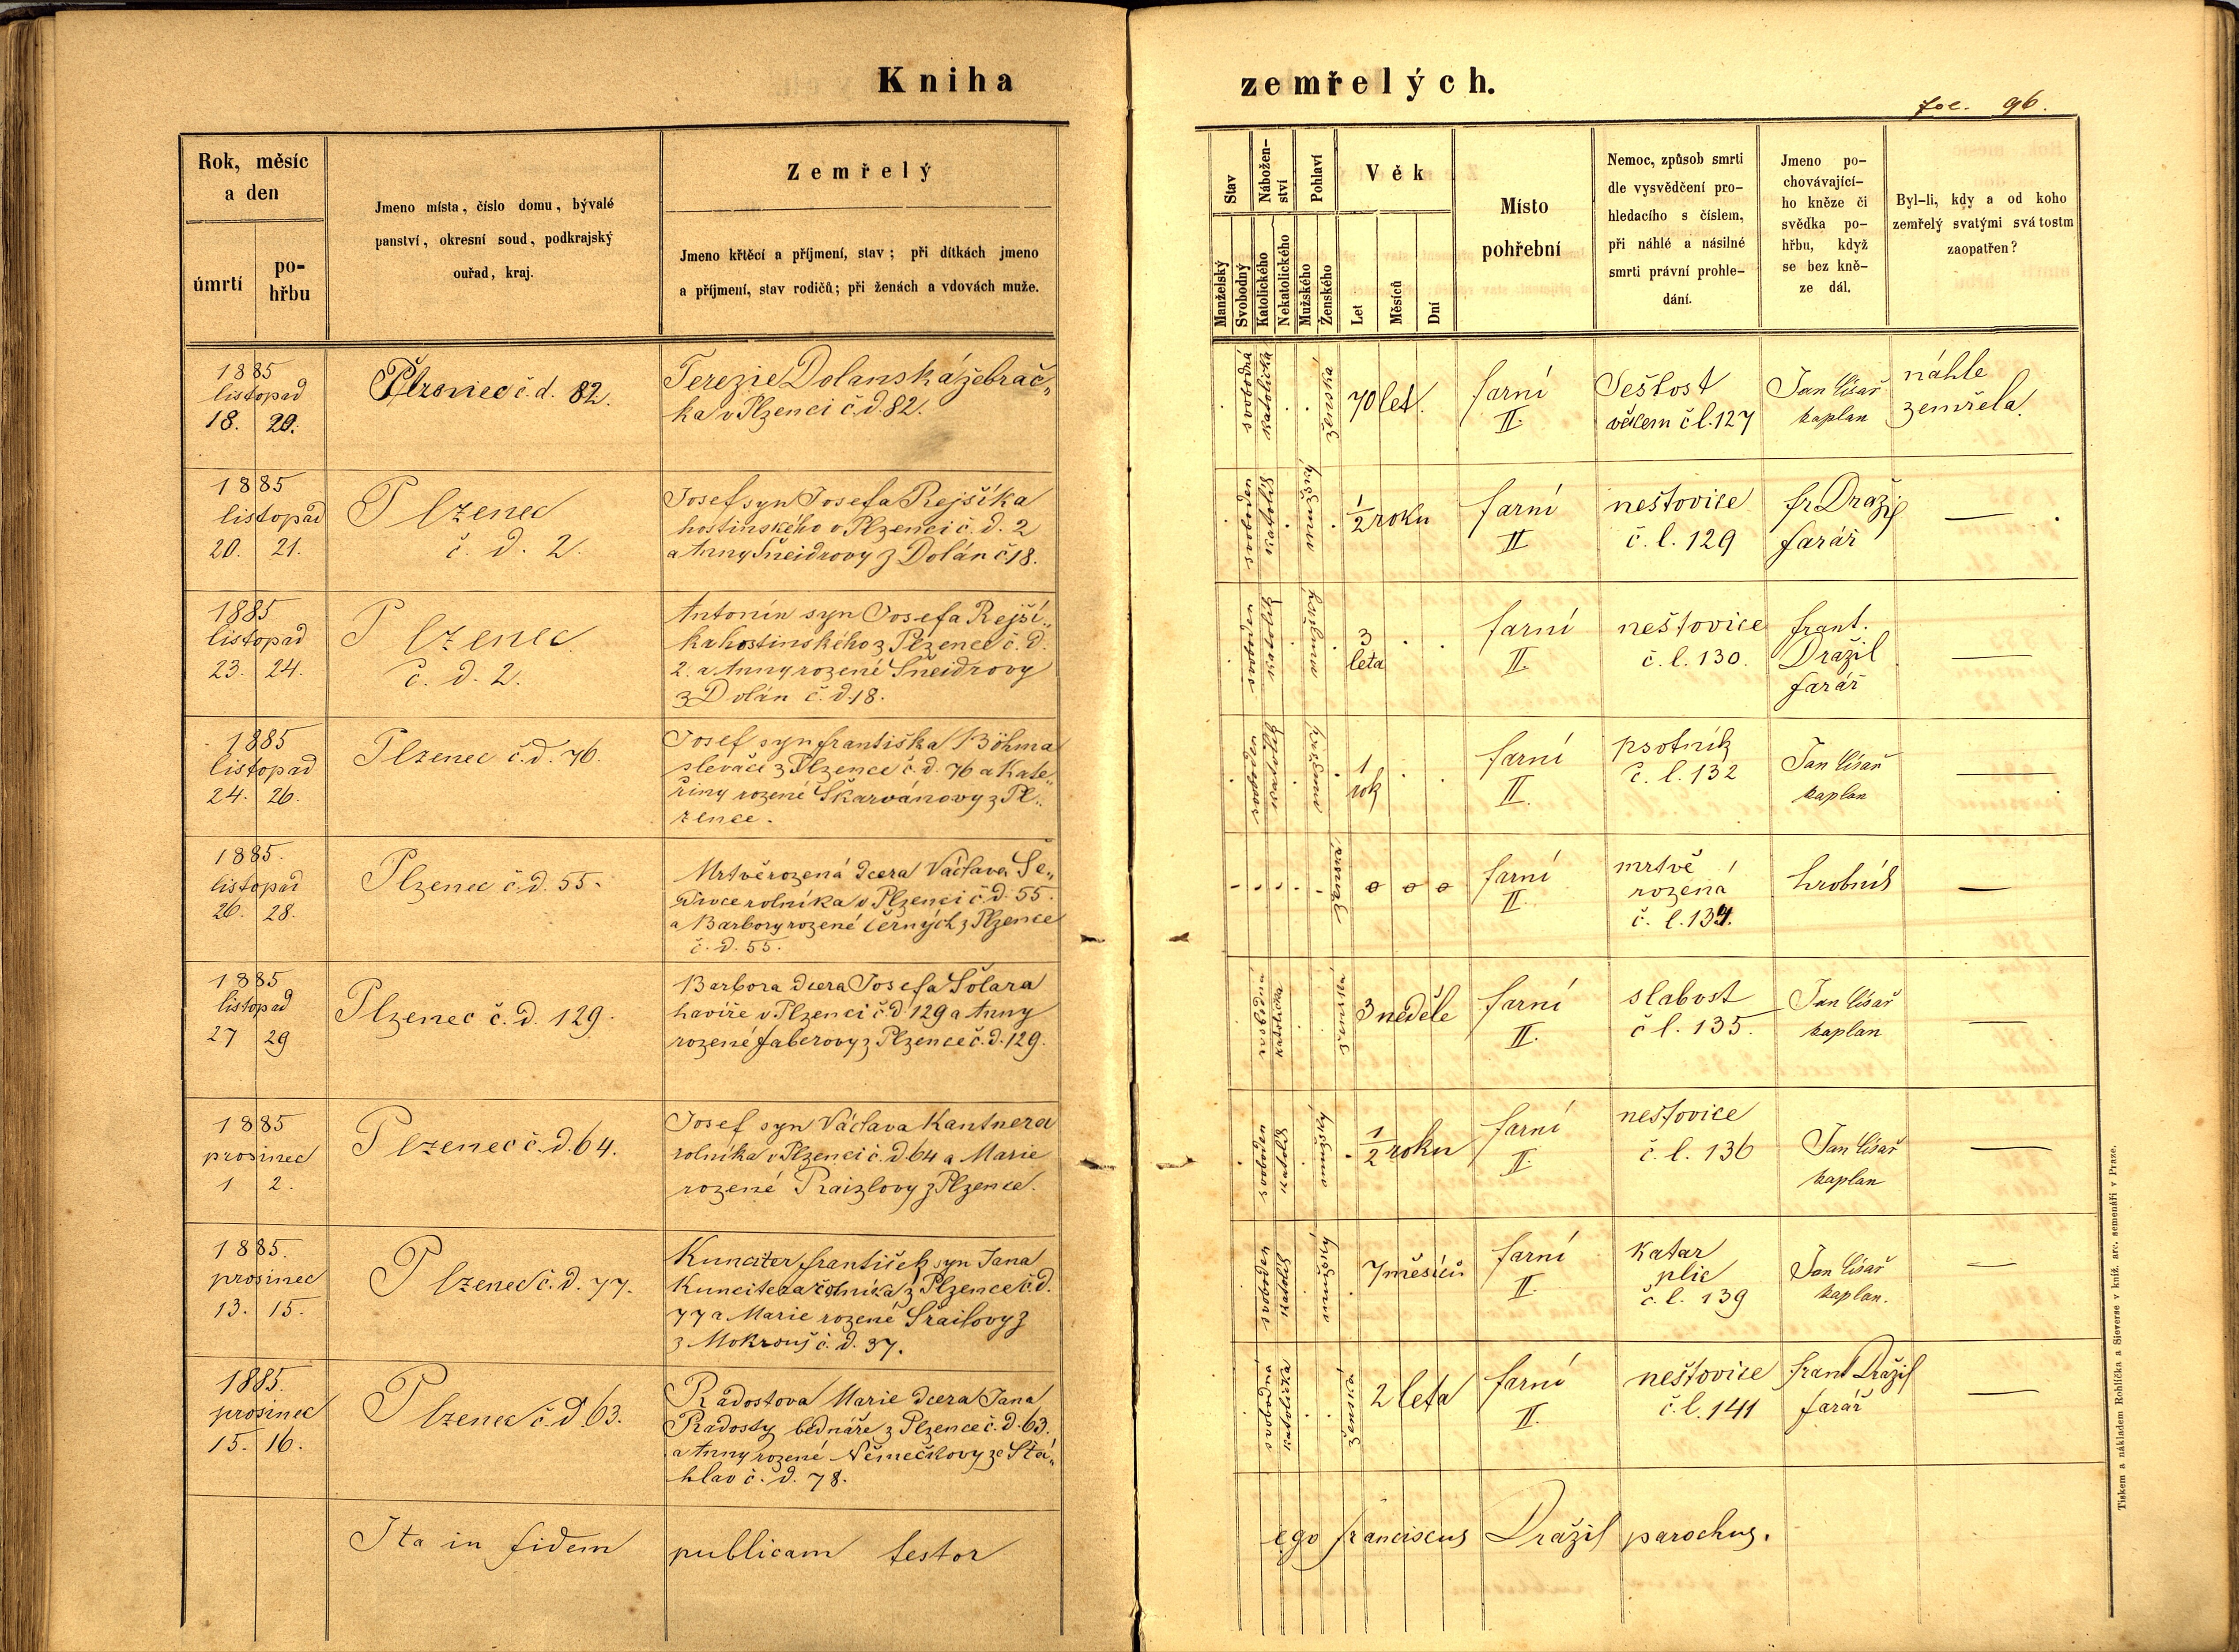 Kniha zemřelých.
fol. 96.
Rok, měsíc
a den
úmrtí
po-
hřbu
Jmeno místa, číslo domu, bývalé
panství, okresní soud, podkrajský
ouřad, kraj.
Zemřelý
Jmeno křtěcí a příjmení, stav; při dítkách jmeno
a příjmení, stav rodičů; při ženách a vdovách muže.
Stav
Nábožen-
ství
Pohlaví
Manželský
Svobodný
Katolického
Nekatolického
Mužského
Ženského
Věk
Let
Měsíců
Dní
Místo
pohřební
Nemoc, způsob smrti
dle vysvědčení pro-
hledacího s číslem,
při náhlé a násilné
smrti právní prohle-
dání.
Jmeno po-
chovávající-
ho kněze či
svědka po-
hřbu, když
se bez kně-
ze dál.
Byl-li, kdy a od koho
zemřelý svatými svátostm
zaopatřen?
1885
listopad
18. 20.
Plzenec č. d. 82.
Terezie Dolanská žebrač„
ka v Plzenci č. d. 82.
svobodná
katolička
ženská
70 let.
farní
II.
Sešlost
věkem č l. 127
Jan Císař
kaplan
náhle
zemřela.
1885
listopad
20. 21.
Plzenec
č. d. 2.
Josef syn Josefa Rejšíka
hostinského v Plzenci č. d. 2
a Anny Šneidrovy z Dolán č 18.
svoboden
katolík
mužský
1/2 roku
farní
II
neštovice
č. l. 129
fr Dražil
farář
—
1885
listopad
23. 24.
Plzenec
č. d. 2.
Antonín syn Josefa Rejší„
ka hostinského z Plzence č. d.
2. a Anny rozené Šneidrovy
z Dolán č. d. 18.
svoboden
katolík
mužský
3
leta
farní
II.
neštovice
č. l. 130.
frant.
Dražil
farář
—
1885
listopad
24. 26.
Plzenec č. d. 76.
Josef syn františka Böhma
slevače z Plzence č. d. 76 a Kate„
řiny rozené Škarvánovy z Pl„
zence.
svoboden
katolík
mužský
1
rok
farní
II.
psotník
č. l. 132
Jan Císař
kaplan
—
1885.
listopad
26. 28.
Plzenec č. d. 55.
Mrtvěrozená dcera Václava Še„
rolníka v Plzenci č. d. 55.
a Barbory rozené Černých z Plzence
č. d. 55.
ženská
0 0 0
farní
II.
mrtvě
rozená
č. l. 134.
hrobník
—
1885
listopad
27 29
Plzenec č. d. 129.
Barbora dcera Josefa Šolara
havíře v Plzenci č. d. 129 a Anny
rozené faberovy z Plzence č. d. 129.
svobodná
katolička
ženská
3 neděle
farní
II.
slabost
č l. 135.
Jan Císař
kaplan
—
1885
prosinec
1 2.
Plzenec č. d. 64.
Josef syn Václava Kantnera
rolníka v Plzenci č. d. 64 a Marie
rozené Raizlovy z Plzence.
svoboden
katolík
mužský
1/2 roku
farní
II.
neštovice
č. l. 136
Jan Císař
kaplan
—
1885.
prosinec
13. 15.
Plzenec č. d. 77.
Kunciter františek syn Jana
Kuncitera rolníka z Plzence č. d.
77 a Marie rozené Šrailovy z
z Mokrouš č. d. 37.
svoboden
katolík
mužský
7 měsíců
farní
II.
Katar
plic
č. l. 139
Jan Císař
kaplan.
—
1885.
prosinec
15. 16.
Plzenec č. d. 63.
Radostova Marie dcera Jana
Radosty bednáře z Plzence č. d. 63.
a Anny rozené Němečkovy ze Šťá„
hlav č. d. 78.
svobodná
katolička
ženská
2 leta
farní
II.
neštovice
č. l. 141
frant Dražil
farář
—
Ita in fidem publicam testor
ego franciscus Dražil parochus.
Tiskem a nákladem Rohlíčka a Sieverse v kníž. arc. semenáři v Praze.